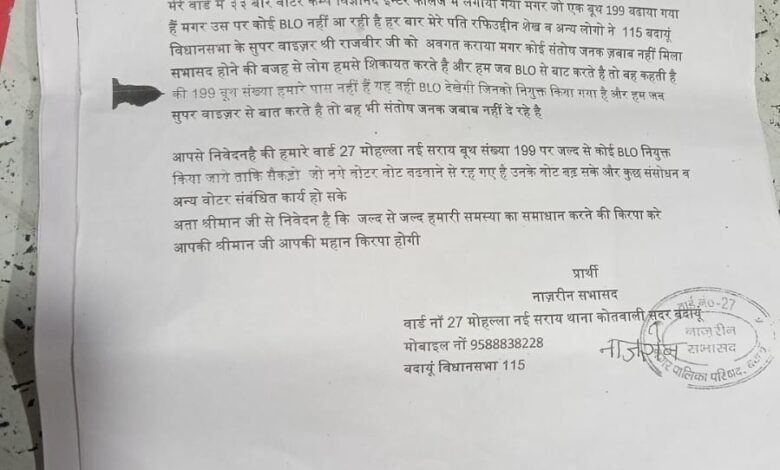 मेरे वार्ड में ३३ बार वोटर कैम्प विज्ञानंद इन्टर कॉलेज में लगाया गया मगर जो एक बूथ 199 बढाया गया
हैं मगर उस पर कोई BLO नहीं आ रही है हर बार मेरे पति रफिउद्दीन शेख व अन्य लोगो ने 115 बदायूं
विधानसभा के सुपर वाइज़र श्री राजवीर जी को अवगत कराया मगर कोई संतोष जनक ज़बाब नहीं मिला
सभासद होने की बजह से लोग हमसे शिकायत करते है और हम जब BLO से बाट करते है तो बह कहती है
की 199 बूथ संख्या हमारे पास नहीं हैं यह बही BLO देखेगी जिनको नियुक्त किया गया है और हम जब
सुपर वाइज़र से बात करते है तो बह भी संतोष जनक जबाब नहीं दे रहे है
आपसे निवेदनहै की हमारे वार्ड 27 मोहल्ला नई सराय बूथ संख्या 199 पर जल्द से कोई BLO नियुक्त
किया जागे ताकि सैकड़ो जो नगे वोटर वोट बढवाने से रह गए है उनके वोट बढ़ सके और कुछ संसोधन व
अन्य वोटर संबंधित कार्य हो सके
अता श्रीमान जी से निवेदन है कि जल्द से जल्द हमारी समस्या का समाधान करने की किरपा करे
आपकी श्रीमान जी आपकी महान किरपा होगी
प्रार्थी
नाज़रीन सभासद
वार्ड नॉ 27 मोहल्ला नई सराय थाना कोतवाली सदर बदायूं
मोबाइल नॉ 9588838228
बदायूं विधानसभा 115
नाजरीन
वार्ड नं0-27
नाज़रीन
सभासद
पालिका परिषद,